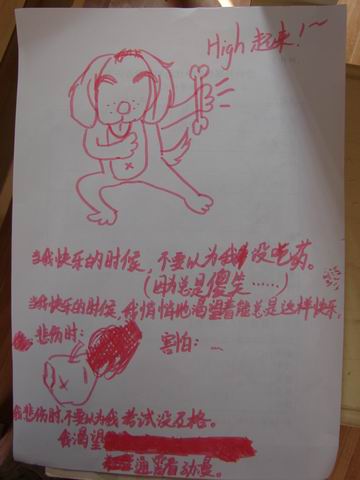 High 起来!~
当我快乐的时候,不要以为我没吃药。
(因为总是傻笑……)
当我快乐的时候,我悄悄地渴望着能总是这样快乐.
悲伤时: 害怕: …
我悲伤时,不要以为我考试没及格。
我渴望
通宵看动漫。